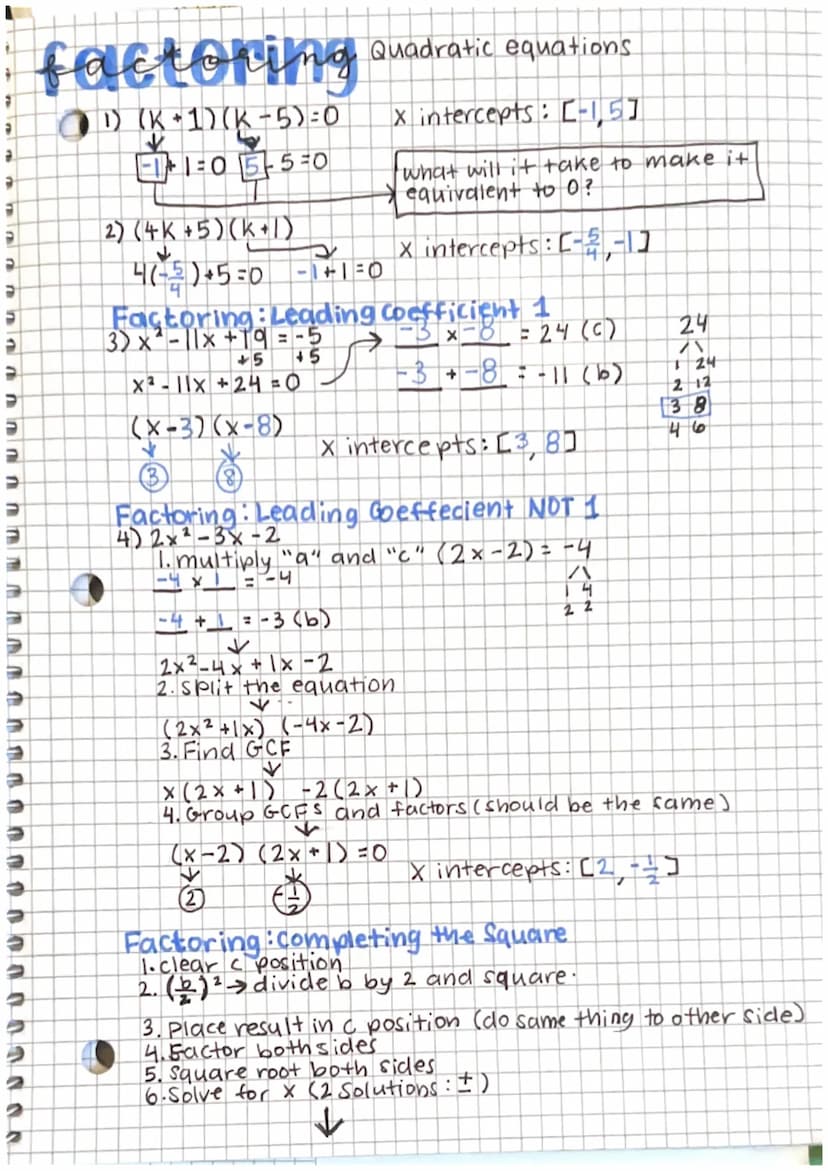 factoring Quadratic equations
1) (K+1)(K-5)=0 x intercepts: [-1,5]
-1+1=0 5-5=0 what will it take to make it
equivalent to 0?
2) (4K+5)(k+1)
x intercepts: [-5/4, -1]
4(-5/4)+5=0 -1+1=0
Factoring: Leading coefficient 1
3) x²-11x+19=-5 -3 x -8 = 24 (c) 24
+5 +5 1 24
x²-11x+24=0 -3 + -8 = -11 (b) 2 12
3 8
(x-3)(x-8) 4 6
x intercepts: [3, 8]
3 8
Factoring: Leading Coeffecient NOT 1
4) 2x²-3x-2
1. multiply "a" and "c" (2x-2)= -4
-4 x 1 = -4 1 4
2 2
-4 + 1 = -3 (b)
2x²-4x+1x-2
2. split the equation
(2x²+1x) (-4x-2)
3. Find GCF
x(2x+1) -2(2x+1)
4. Group GCFS and factors (should be the same)
(x-2) (2x+1)=0
x intercepts: [2, -1/2]
2 -1/2
Factoring: completing the Square
1. clear c position
2. (b/2)² → divide b by 2 and square.
3. Place result in c position (do same thing to other side)
4. Factor both sides
5. Square root both sides
6. Solve for x (2 Solutions: ±)